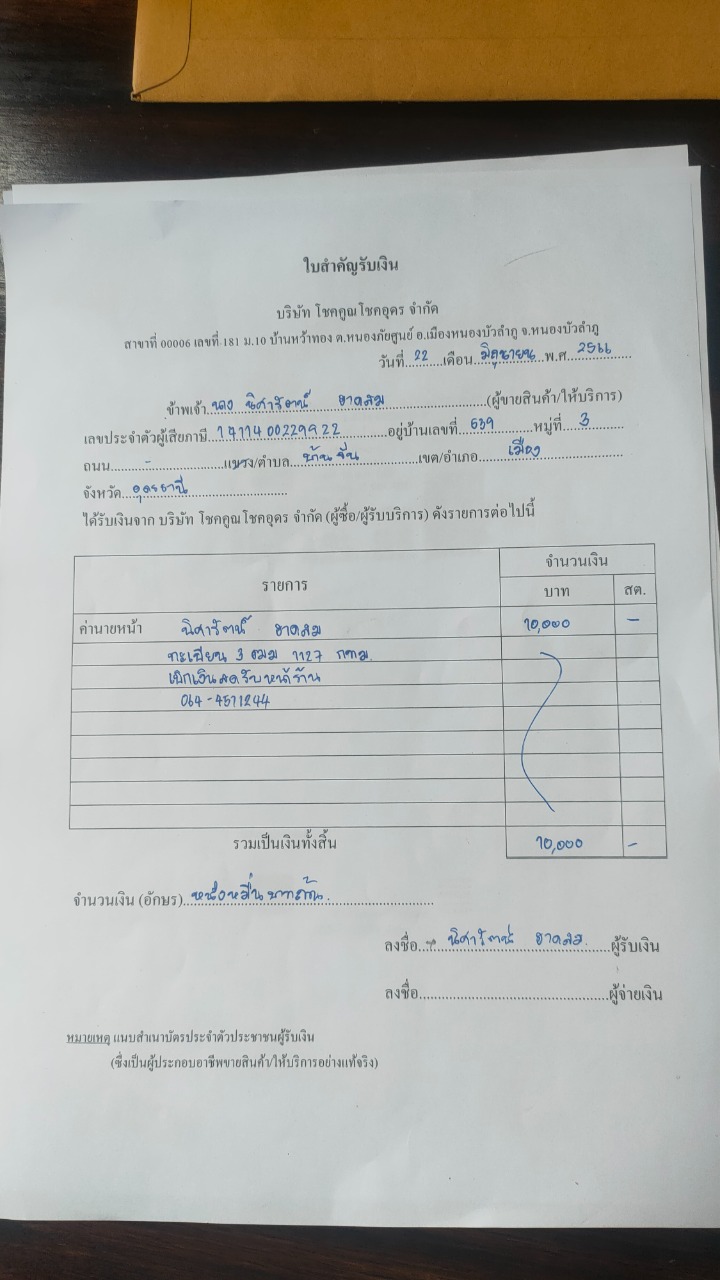 ใบสำคัญรับเงิน
บริษัท โชคคูณโชคอุดร จำกัด
สาขาที่ 00006 เลขที่ 181 ม.10 บ้านหว้าทอง ต.หนองภัยศูนย์ อ.เมืองหนองบัวลำภู จ.หนองบัวลำภู
วันที่ 22 เดือน มิถุนายน พ.ศ. 2566
ข้าพเจ้า นาง นิศารัตน์ อาดสม (ผู้ขายสินค้า/ให้บริการ)
เลขประจำตัวผู้เสียภาษี 1411400229922 อยู่บ้านเลขที่ 639 หมู่ที่ 3
ถนน - แขวง/ตำบล บ้านจั่น เขต/อำเภอ เมือง
จังหวัด อุดรธานี
ได้รับเงินจาก บริษัท โชคคูณโชคอุดร จำกัด (ผู้ซื้อ/ผู้รับบริการ) ดังรายการต่อไปนี้
รายการ จำนวนเงิน
บาท สต.
ค่านายหน้า นิศารัตน์ อาดสม 10,000 -
ทะเบียน 3 ฒฒ 1127 กทม.
เบิกเงินสดรับหน้าร้าน
064-4571244
รวมเป็นเงินทั้งสิ้น 10,000 -
จำนวนเงิน (อักษร) หนึ่งหมื่นบาทถ้วน
ลงชื่อ นิศารัตน์ อาดสม ผู้รับเงิน
ลงชื่อ ผู้จ่ายเงิน
หมายเหตุ แนบสำเนาบัตรประจำตัวประชาชนผู้รับเงิน
(ซึ่งเป็นผู้ประกอบอาชีพขายสินค้า/ให้บริการอย่างแท้จริง)